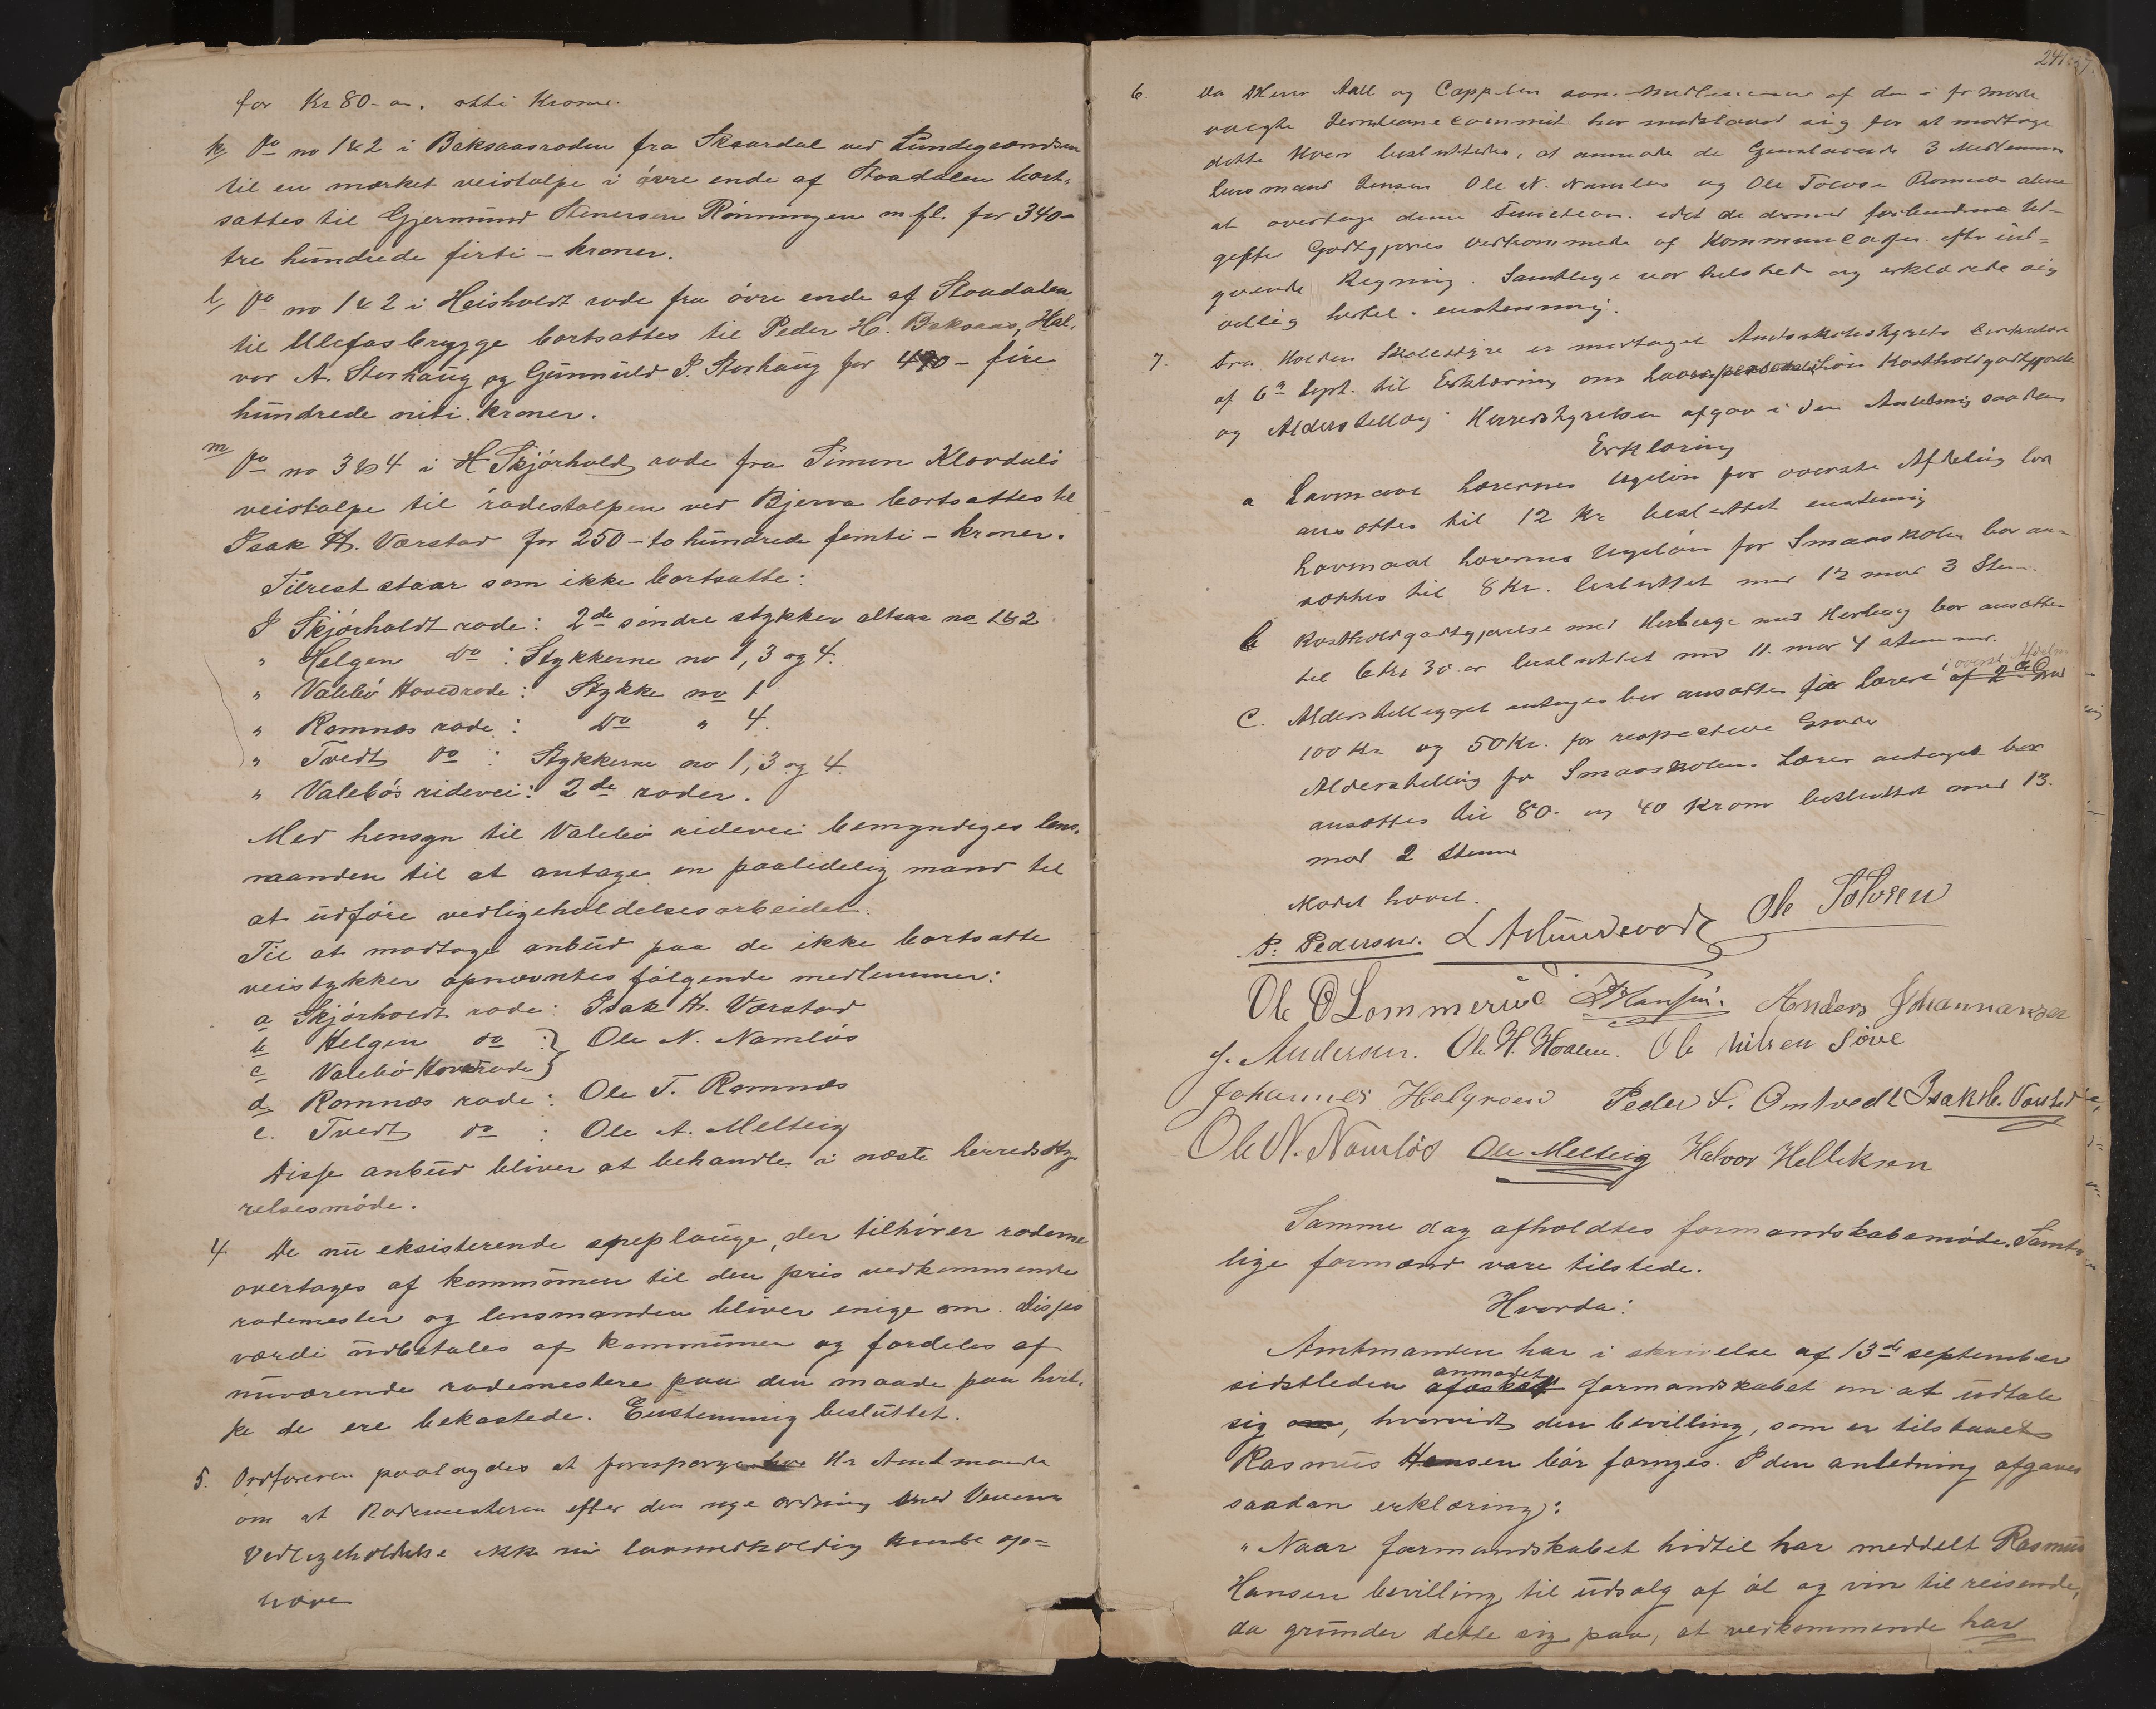 for Kr 80 - otti Kroner.
k, Do no 1 & 2 i Baksaasroden fra Skaardal ved Lundegrændsen
til en mærket veistolpe i øvre ende af Stoadalen bort-
sattes til Gjermund Stenersen Rønningen m fl. for 340-
tre hundrede firti - kroner.
l, Do no 1 & 2 i Heisholdt rode fra øvre ende af Stoadalen
til Ulefosbrygge bortsattes til Peder H. Baksaas, Hal-
vor A. Storhaug og Gunnuld P. Storhaug for 490 - fire
hundrede niti kroner.
m Do no 3 & 4 i Skjørholdt rode fra Simon Klovdals
veistolpe til rodestolpen ved Bjerva bortsattes til
Isak H. Værstad for 250 - to hundrede femti - kroner.
Tilrest staar som ikke bortsatte:
I Skjørholdt rode: 2de søndre stykker altsaa no 1 & 2
" Helgen Do : Stykkerne no 1, 3 og 4.
" Valebø Hovedrode: Stykke no 1
" Romnæs rode : Do " 4.
" Tvedt Do : Stykkerne no 1, 3 og 4.
" Valebøs ridevei: 2de roder.
Med hensyn til Valebø ridevei bemyndiges lens-
manden til at antage en paalidelig mand til
at udføre vedligeholdelsesarbeidet.
Til at modtage anbud paa de ikke bortsatte
veistykker opnævntes følgende medlemmer:
a Skjørholdt rode: Isak H. Værstad
b Helgen do : } Ole N. Namløs
c Valebø Hovedrode }
d, Romnæs rode: Ole T. Romnæs
e. Tvedt do : Ole A. Melteig
Disse anbud bliver at behandle i næste herredssty-
relsesmøde.
4 De nu eksisterende sneplouge, der tilhører roderne
overtages af kommunen til den pris vedkommende
rodemester og lensmanden bliver enige om. Disses
værdi udbetales af kommunen og fordeles af
nuværende rodemestere paa den maade paa hvil-
ke de ere bekostede. Enstemmig besluttet.
5. Ordføreren paalagdes at forespørge Hr Amtmanden
om at Rodemesteren efter den nye ordning med Veienes
Vedligeholdelse ikke nu lovmedholdig kunde op-
hæve
6. Da Herrer Aall og Cappelen som Medlemmer af den i formode
valgte Jernbanecommite har undslaaet sig for at modtage
dette Hverv besluttedes, at anmode de Gjenlevende 3 Medlemmer
Lensmand Jensen Ole N. Namløs og Ole Romnæs alene
at overtage denne Function. idet de dermed forbundne Ud-
gifter Godtgjøres vedkommende af Kommunecassen efter ind-
givende Regning. Samtlige var tilstede og erklærede sig
villig hertil. enstemmig.
7. Fra Holden Skolestyre er modtaget Amtsskolestyrets Cirkulære
af 6te Sept. til Erklæring om Løn Kostholdgodtgjørelse
og Alderstillæg. Herredstyrelsen afgav i den Anledning saadan
Erklæring
a Lavmaal Lærernes Ugeløn for øverste Afdeling bør
ansættes til 12 Kr besluttet enstemig
Lavmaal Lærernes Ugeløn for Smaaskolen bør an-
sættes til 8 Kr. besluttet med 12 mod 3 Stem.
b Kostholdgodtgjørelse med Herberge bør ansættes
til 6 Kr 30 ør besluttet med 11 mod 4 stemmer.
c. Alderstillegget antages bør ansættes for Lærere i øverst Afdeling
100 Kr og 50 Kr. for respective Grader
Alderstillæg for Smaaskolens Lærer antaget bør
ansættes til 80. og 40 Kroner besluttet med 13.
mod 2 Stemmer
Mødet hævet.
P. Pedersen. Ole Tolvsen
Ole O Lommerud Hansen. Anders Johannessen
J. Andersen. Ole H. Hoalen. Ole Nilsen Søve
Johannes Helgesen Peder S. Omtvedt Isak H. Værstad
Ole N. Namløs Ole Melteig Halvor Helliksen
Samme dag afholdtes formandskabsmøde. Samt-
lige formænd vare tilstede.
Hvorda:
Amtmanden har i skrivelse af 13de september
sidstleden anmodet formandskabet om at udtale
sig, hvorvidt den bevilling, som er tilstaaet
Rasmus Hansen bør fornyes. I den anledning afgaves
saadan erklæring:
"Naar formandskabet hidtil har meddelt Rasmus
Hansen bevilling til udsalg af øl og vin til reisende,
da grunder dette sig paa, at vedkommende har